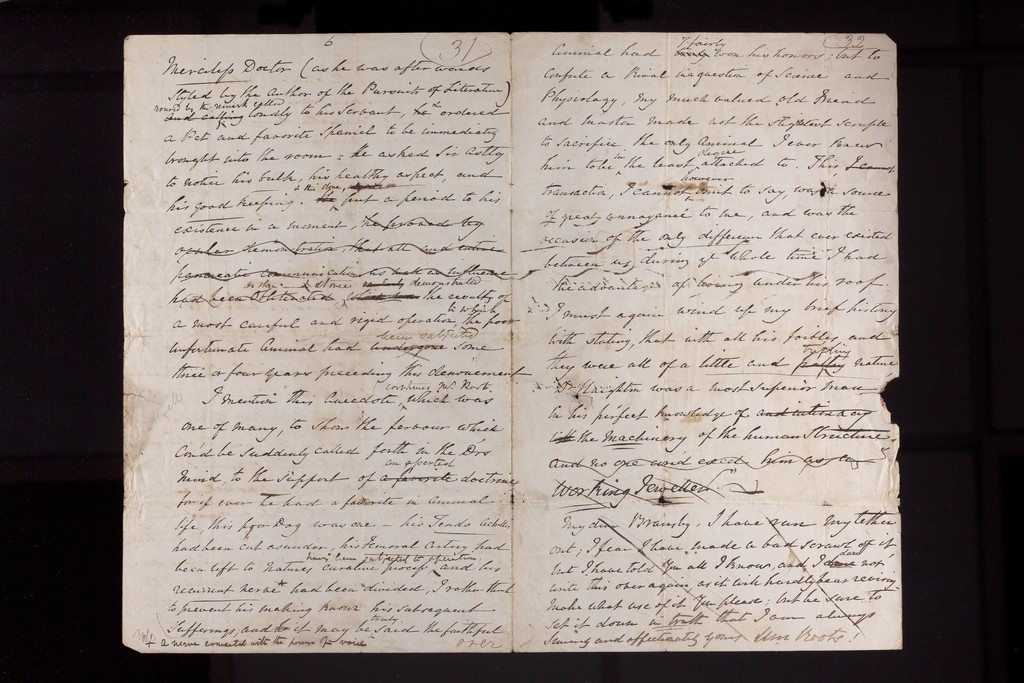 6
31
Merciless Doctor (as he was afterwards
Styled by the Author of the Pursuits of Literature)
roused by the remark called
and calling loudly to his Servant, he ordered
a Pet and favorite Spaniel to be immediately
brought into the room: He asked Sir Astley
to notice his bulk, his healthy aspect, and
his good keeping. this done, He put a period to his
existence in a moment, he proved by
ocular demonstration, that all and entire
pancreatic communication as well as influence
had been obliterated demonstrated the results of
a most careful and rigid operation, to which the poor
been subjected
unfortunate animal had undergone some
three or four years preceding this denouement
continues Mr. North,
I mention this anecdote, which was
one of many, to show the fervour which
Could be suddenly called forth in the Drs
an asserted
Mind to the support of a favorite doctrine
for if ever he had a favorite in animal
life, this poor Dog was one – his Tendo Achilles
had been cut asunder, his Femoral Artery had
having been subjected to operation
been left to Natures Curative process, and his
recurrent nerve + had been divided, I rather think
to prevent his making known his subsequent
truly
Sufferings, and it may be said the faithful
+ a nerve connected with the power of voice
over
32
fairly
Animal had won his honors; but to
Confute a Rival in question of Science and
Physiology, my much valued old Friend
and Master made not the slightest Scruple
to Sacrifice the only Animal I ever knew
degree
him to be in the least attached to. This,
however
transaction, I cannot omit to say, was a source
of great annoyance to me, and was the
occasion of the only difference that ever existed
between us, during ye whole time I had
the advantage of living under his roof.
I must again wind up my brief history
with stating, that with all his foibles, and
trifling
they were all of a little and paltry nature
Dr Haighton was a most superior man
in his perfect knowledge of
with the Machinery of the human Structure
and no one could exceed him as any
Working Jeweller."
My dear Bransby, I have run my tether
out; I fear I have made a bad scrawl of it
but I have told you all I know, and I dare not
write this over again, as it will hardly bear revising
make what use of it you please; but be sure to
set it down in truth that I am always
Sincerely and affectionately yours